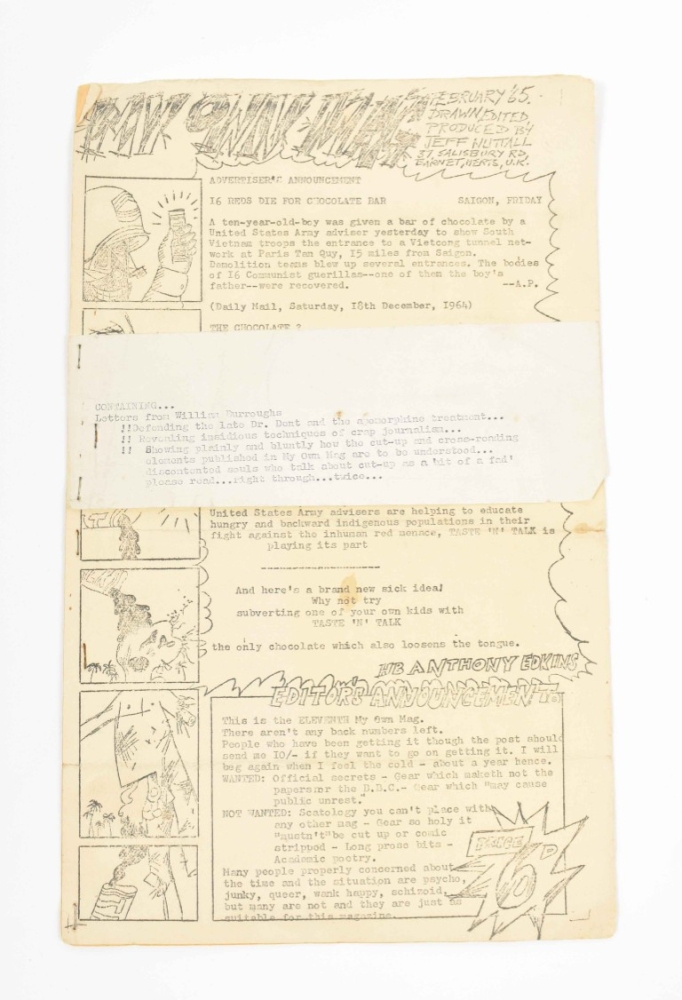 MY OWN MAG
FEBRUARY '65.
DRAWN, EDITED
PRODUCED BY
JEFF NUTTALL
37 SALISBURY RD,
BARNET, HERTS, U.K.
ADVERTISER'S ANNOUNCEMENT
16 REDS DIE FOR CHOCOLATE BAR SAIGON, FRIDAY
A ten-year-old-boy was given a bar of chocolate by a
United States Army adviser yesterday to show South
Vietnam troops the entrance to a Vietcong tunnel net-
work at Paris Tan Quy, 15 miles from Saigon.
Demolition teams blew up several entrances. The bodies
of 16 Communist guerillas--one of them the boy's
father--were recovered. --A.P.
(Daily Mail, Saturday, 18th December, 1964)
THE CHOCOLATE ?
CONTAINING...
Letters from William Burroughs
!!Defending the late Dr. Dent and the apomorphine treatment...
!! Revealing insidious techniques of crap journalism...
!! Showing plainly and bluntly how the cut-up and cross-reading
elements published in My Own Mag are to be understood...
discontented souls who talk about cut-up as a 'bit of a fad'
please read...right through...twice...
United States Army advisers are helping to educate
hungry and backward indigenous populations in their
fight against the inhuman red menace, TASTE 'N' TALK is
playing its part
And here's a brand new sick idea!
Why not try
subverting one of your own kids with
TASTE 'N' TALK
the only chocolate which also loosens the tongue.
ANTHONY EDKINS
EDITORS ANNOUNCEMENT.
This is the ELEVENTH My Own Mag.
There aren't any back numbers left.
People who have been getting it though the post should
send me 10/- if they want to go on getting it. I will
beg again when I feel the cold - about a year hence.
WANTED: Official secrets - Gear which maketh not the
papers or the B.B.C.- Gear which "may cause
public unrest."
NOT WANTED: Scatology you can't place with
any other mag - Gear so holy it
"mustn't"be cut up or comic
stripped - Long prose bits -
Academic poetry.
Many people properly concerned about
the time and the situation are psycho,
junky, queer, wank happy, schizoid,
but many are not and they are just as
suitable for this magazine.
PRICE
6D